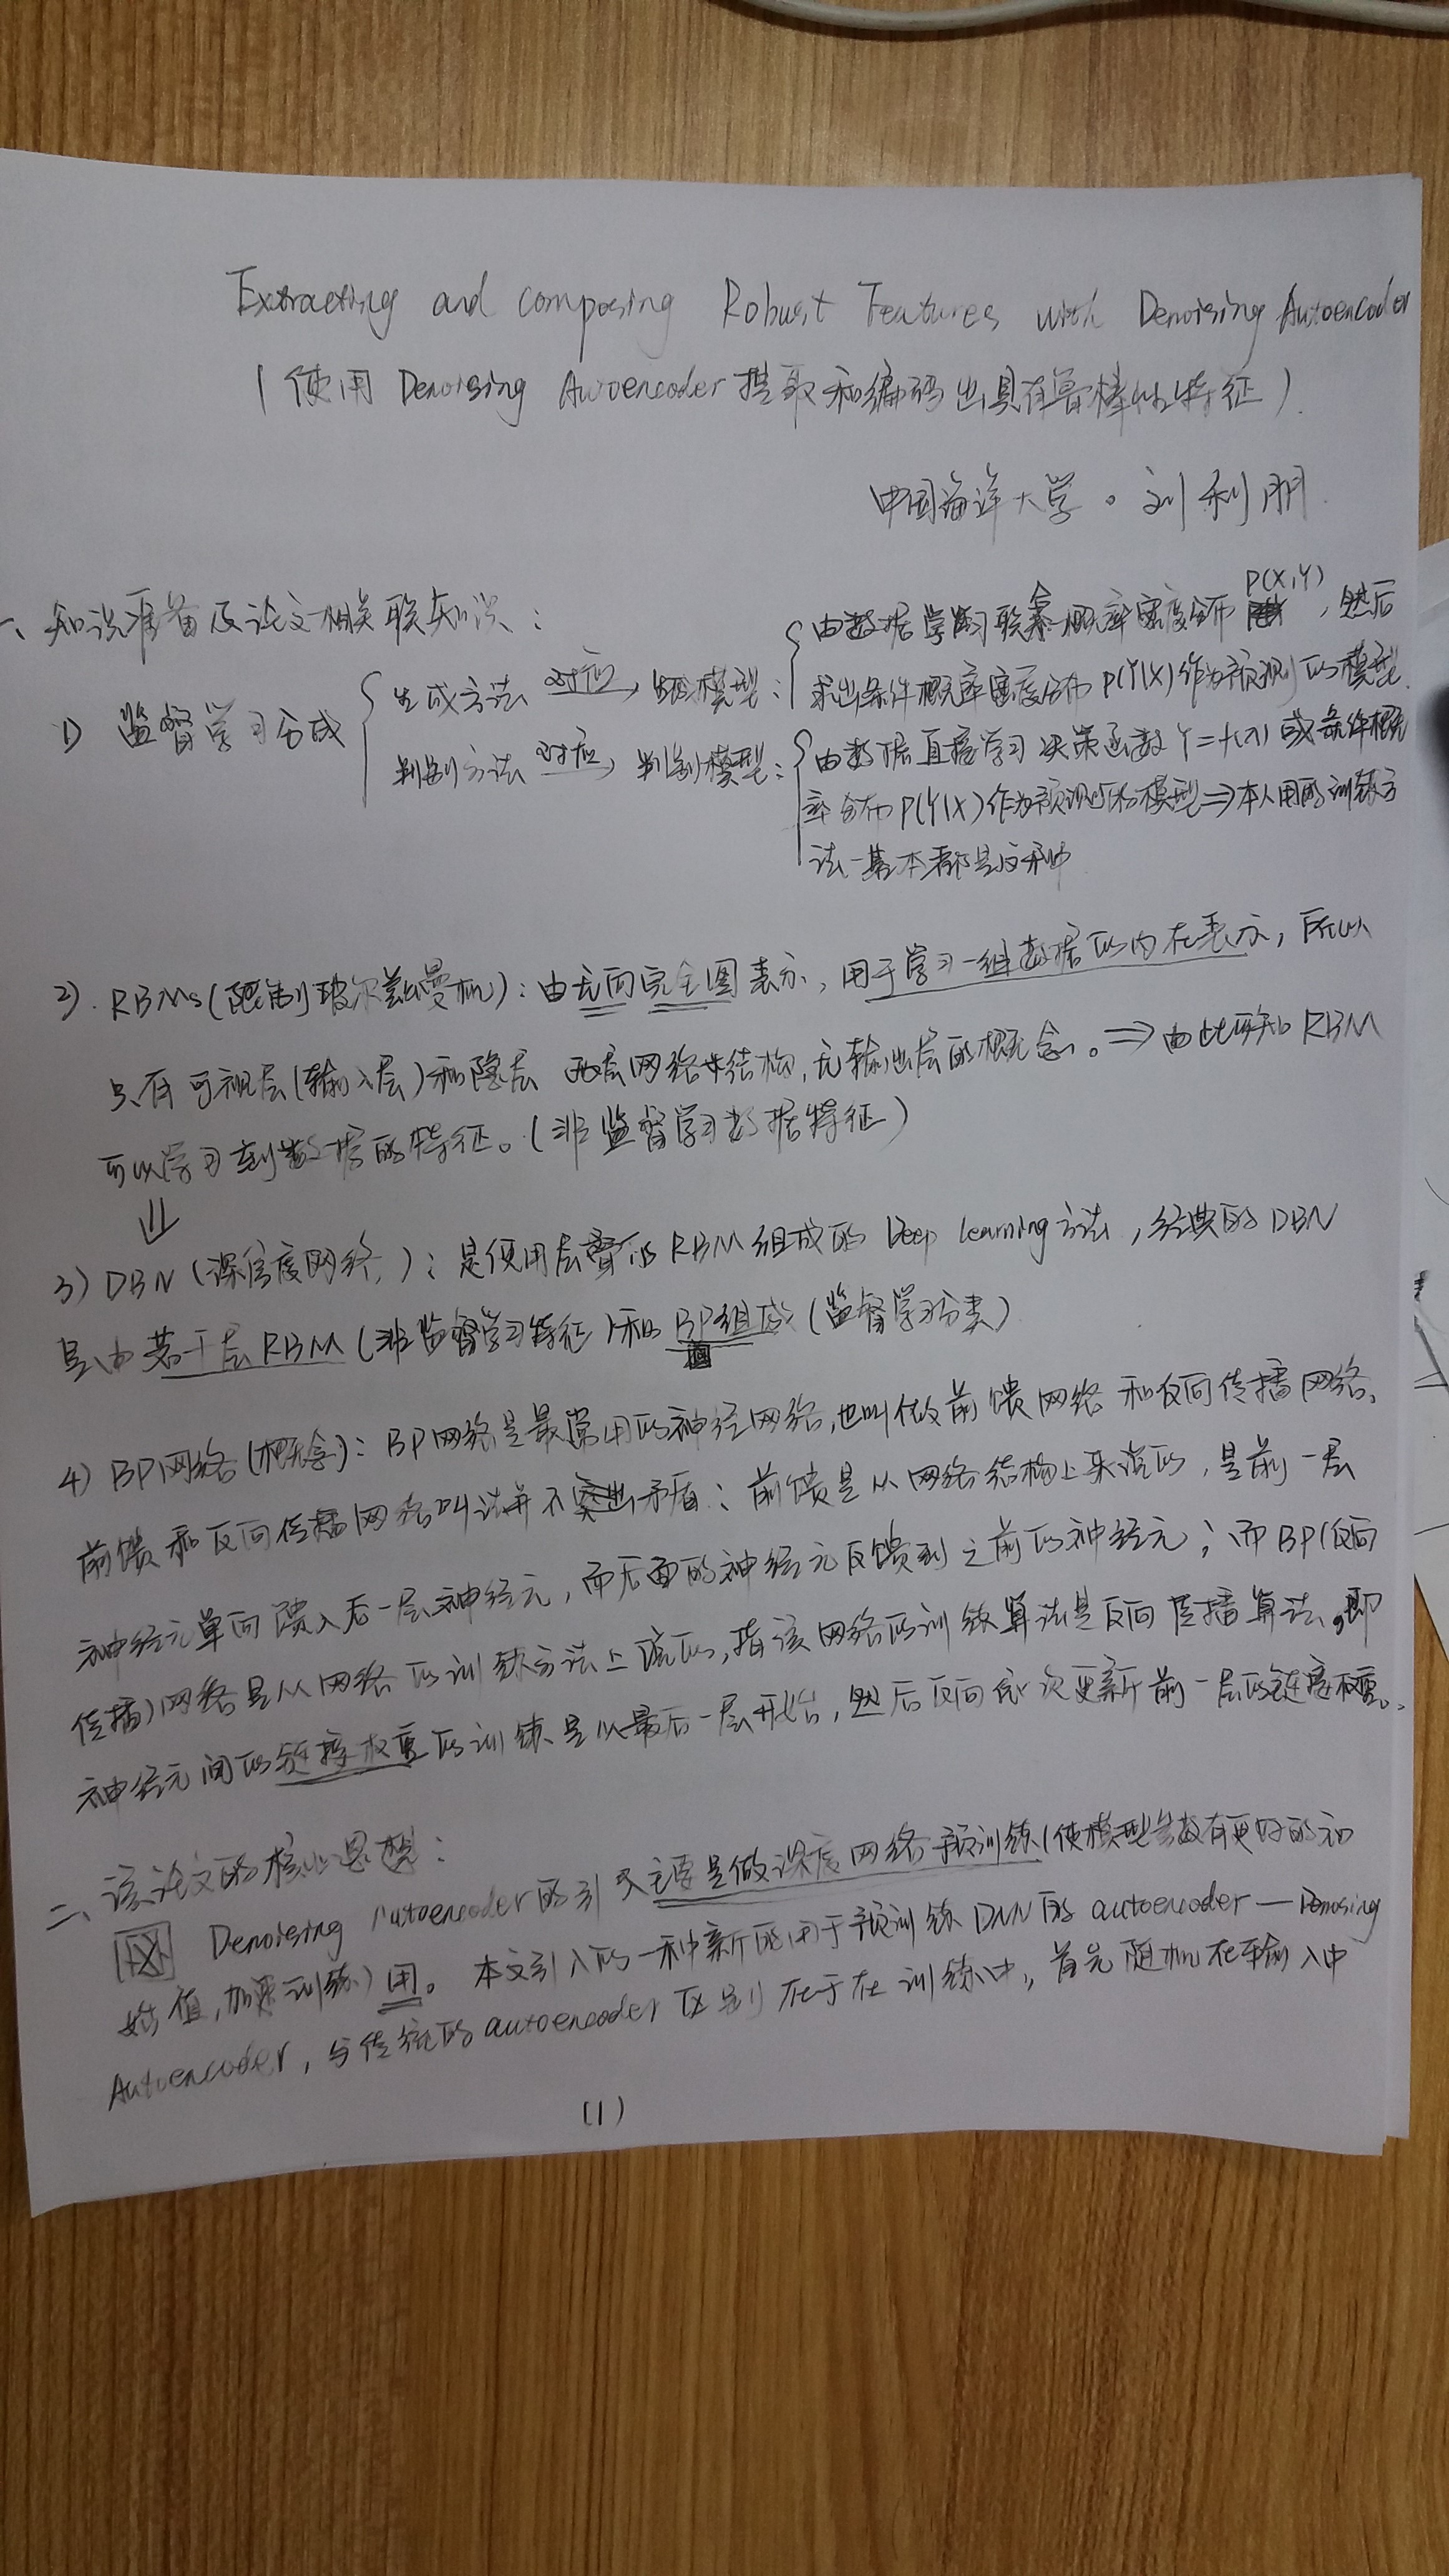 Extracting and composing Robust Features with Denoising Autoencoder
(使用 Denoising Autoencoder 提取和编码出具有鲁棒性特征).
中国海洋大学。刘利朋
一、知识准备及论文相关联知识:
1) 监督学习分成
生成方法 对应→ 生成模型: 由数据学习联合概率密度分布 P(X,Y), 然后
求出条件概率密度分布 P(Y|X)作为预测的模型
判别方法 对应→ 判别模型: 由数据直接学习决策函数 Y=f(x) 或条件概
率分布 P(Y|X)作为预测的模型⇒本人用的训练方
法一基本都是这种
2). RBMs(限制玻尔兹曼机): 由无向完全图表示, 用于学习一组数据的内在表示, 所以
只有可视层(输入层)和隐层 两层网络结构, 无输出层的概念。⇒ 由此可知 RBM
可以学习到数据的特征。(非监督学习数据特征)
⇓
3) DBN (深信度网络): 是使用层叠的 RBM 组成的 Deep learning 方法, 经典的 DBN
是由若干层 RBM (非监督学习特征)和 BP组成 (监督学习分类)
4) BP网络(概念): BP网络是最常用的神经网络,也叫做前馈网络和反向传播网络.
前馈和反向传播网络叫法并不矛盾: 前馈是从网络结构上来说的, 是前一层
神经元单向馈入后一层神经元, 而后面的神经元反馈到之前的神经元; 而BP(反向
传播)网络是从网络的训练方法上说的, 指该网络的训练算法是反向传播算法。即
神经元间的链接权重的训练是从最后一层开始, 然后反向依次更新前一层的链接权重。
二、该论文的核心思想:
Denoising Autoencoder的引入主要是做深度网络预训练(使模型参数有更好的初
始值,加速训练)用。本文引入的一种新的用于预训练 DNN 的 autoencoder — Denosing
Autoencoder, 与传统的 autoencoder 区别在于在训练中, 首先随机在输入中
(1)